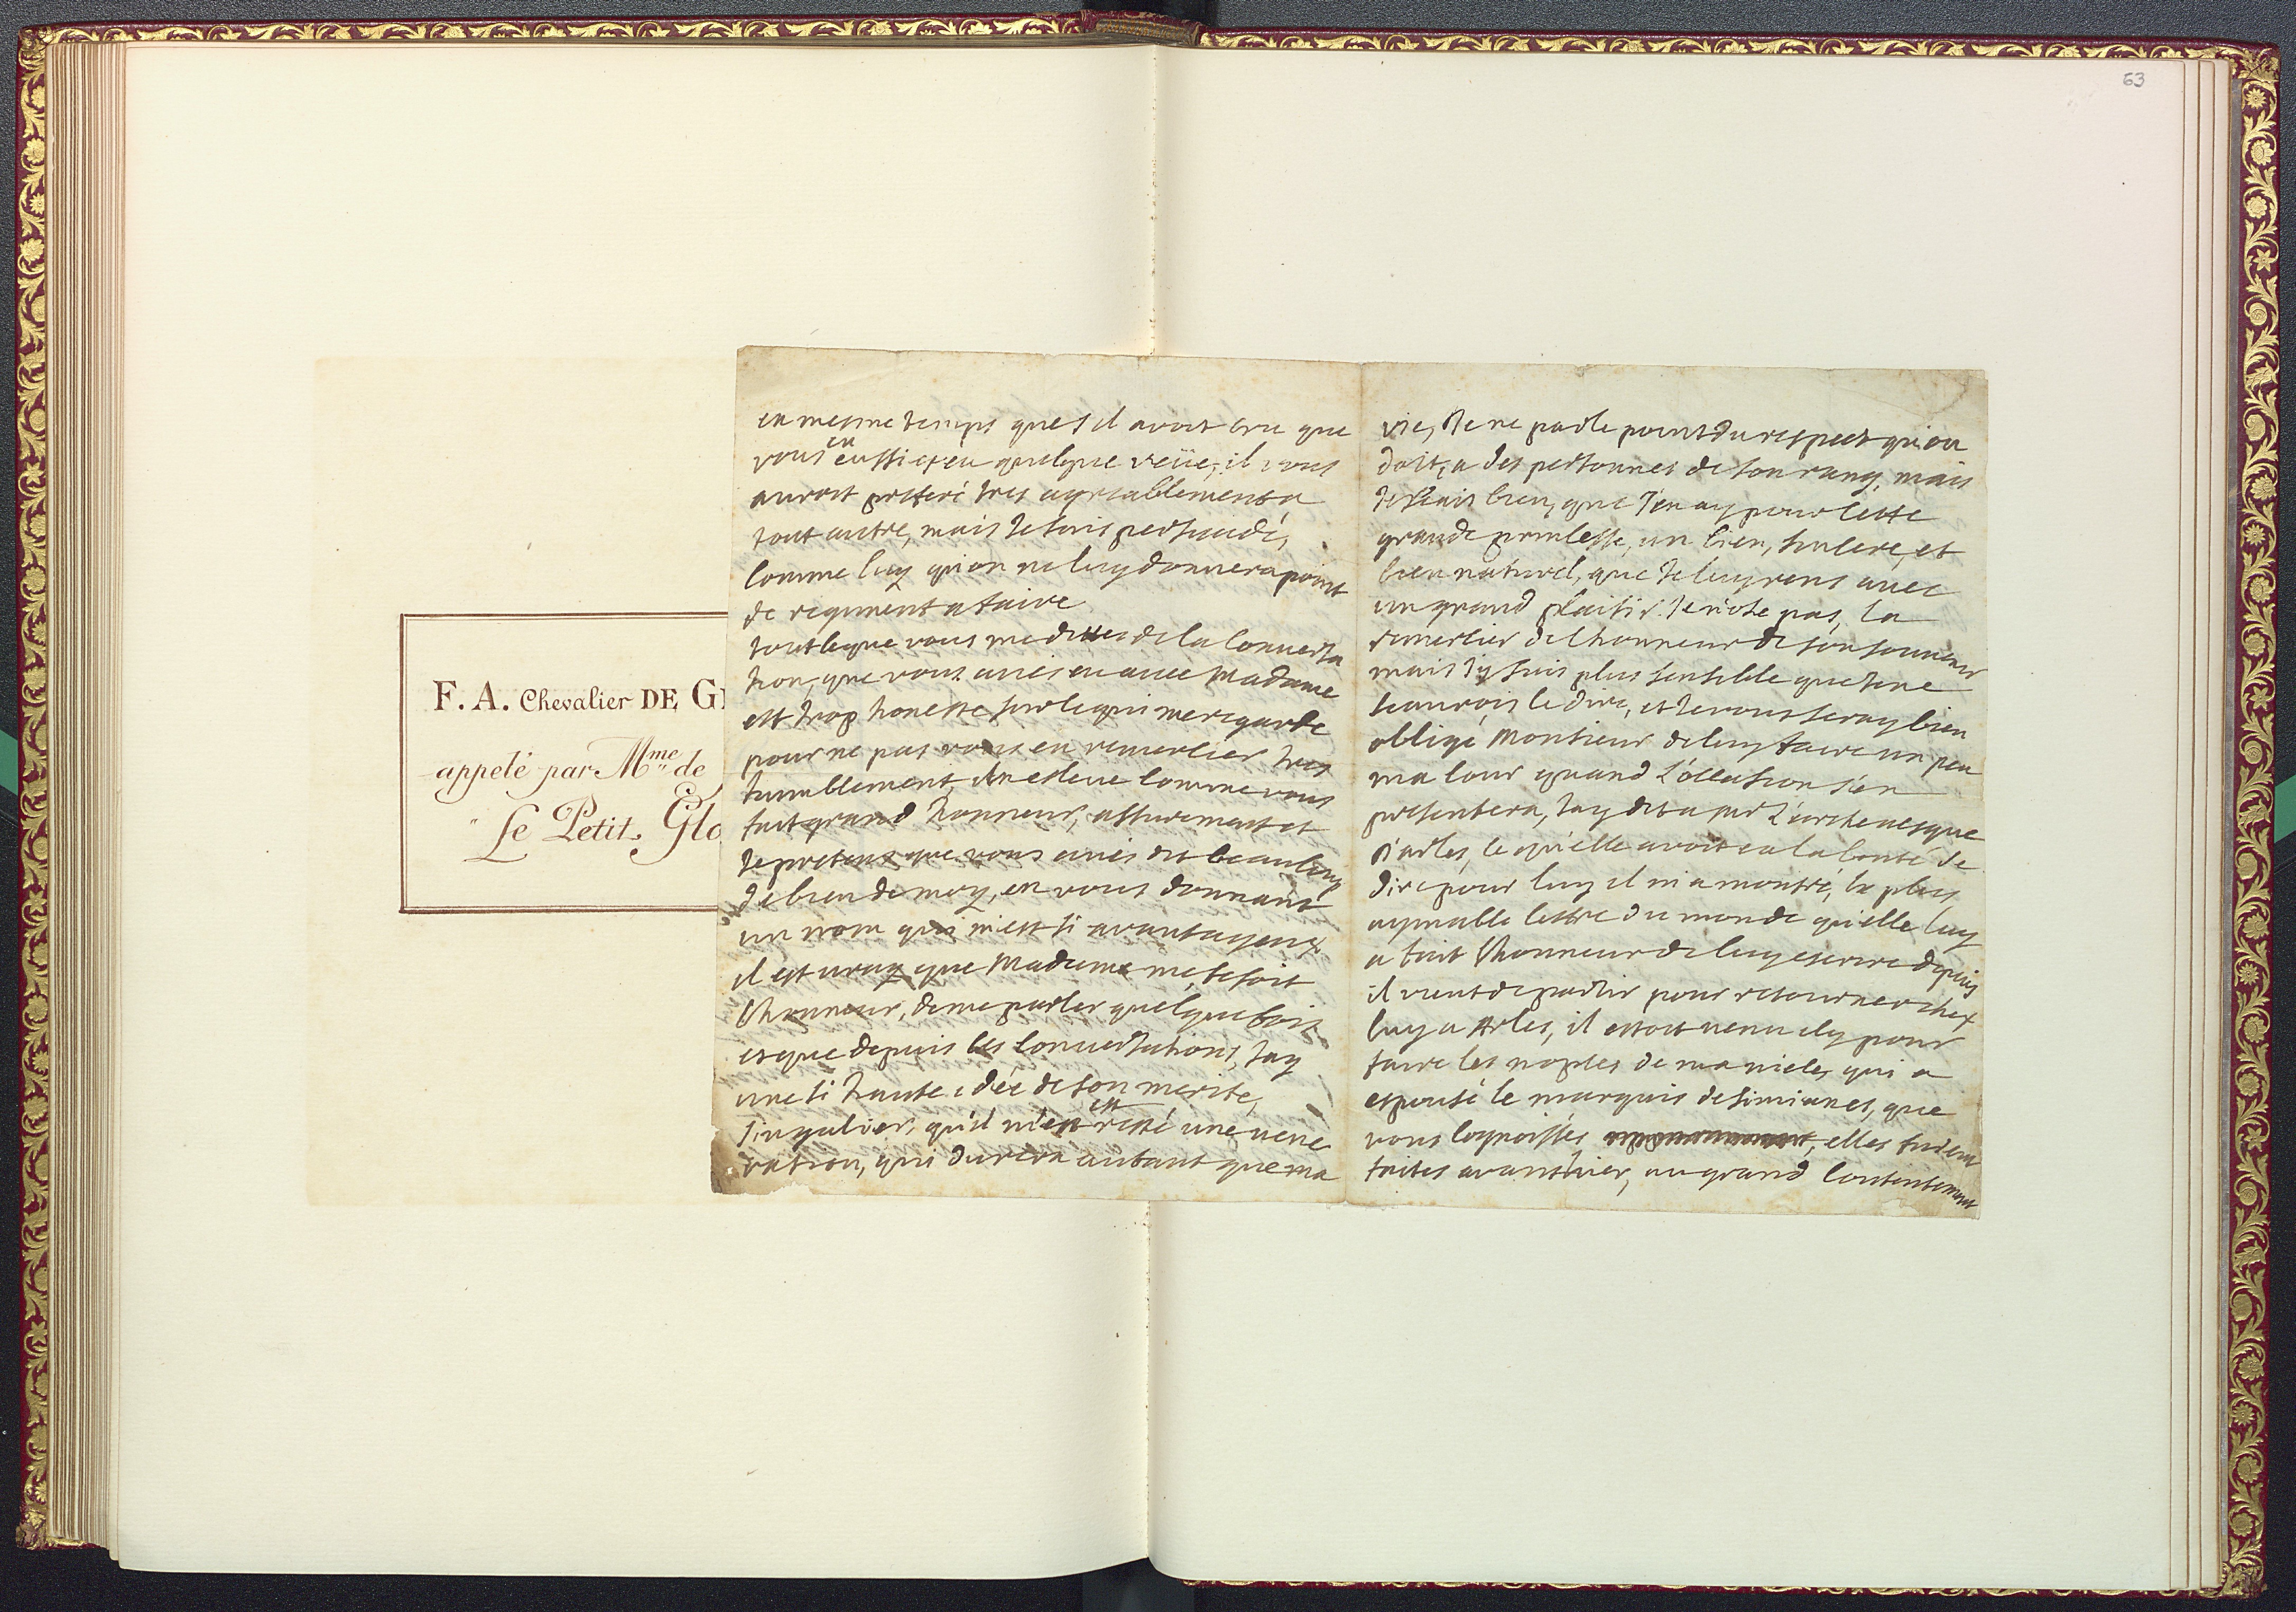 63
F. A. Chevalier DE G
appelé par Mme de
"Le Petit Glo
en mesme temps que s'il avoit cru que
vous en eussiez eu quelque veüe, il vous
auroit preferé tres agreablement a
tout autre, mais Je suis persuadé,
comme luy qu'on ne luy donnera point
de regiment a faire
tout ce que vous me dittes de la conuersa
tion, que vous aués eu auec Madame
est trop honeste sur ce qui me regarde
pour ne pas vous en remercier tres
humblement, comme vous
fait grand honneur, assurement et
Je pretens que vous aués dit beaucoup
de bien de moy, en vous donnant
un nom qui m'est si avantageux
il est uray que Madame me, fesoit
l'honneur, de me parler quelque fois
et que depuis ces conuersations, J'ay
une si haute idée de son merite,
singulier, qu'il m'en est resté une vene
ration, qui durera autant que ma
vie, Je ne parle point du respect qu'on
doit, a des personnes de son rang, mais
Je sçais bien, que J'en ay pour cette
grande princesse, un bien, sincere, et
bien naturel, que Je luy rens avec
un grand plaisir. Je n'ose pas, la
remercier de l'honneur de son souuenir
mais J'y suis plus sensible que Je ne
scaurois le dire, et Je vous seray bien
obligé Monsieur de luy faire un peu
ma cour quand l'occasion s'en
presentera, J'ay dit a mr L'archeuesque
d'arles, ce qu'elle avoit eu la bonté de
dire pour luy il m'a montré, la plus
aymable lettre du monde qu'elle luy
a fait l'honneur de luy escrire depuis
il vient de partir pour retourner chez
luy a Arles, il estoit venu icy pour
faire les nopces de ma niece, qui a
espousé le marquis de simianes, que
vous cognoissés, elles furent
faites avant hier, au grand contentement